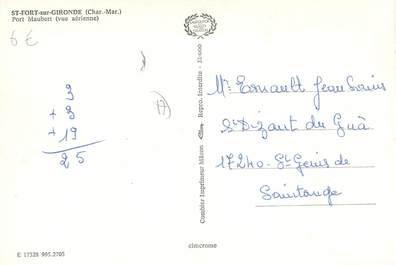 ST-FORT-sur-GIRONDE (Char.-Mar.)
Port Maubert (vue aérienne)
6 €
17)
3
+ 3
+ 19
25
Combier Imprimeur Mâcon
Repro. Interdite - 21000
Mr Ernault Jean Louis
St Dizant du Guà
17240 - St Genis de
Saintonge
cimcrome
E 17328 995.2705